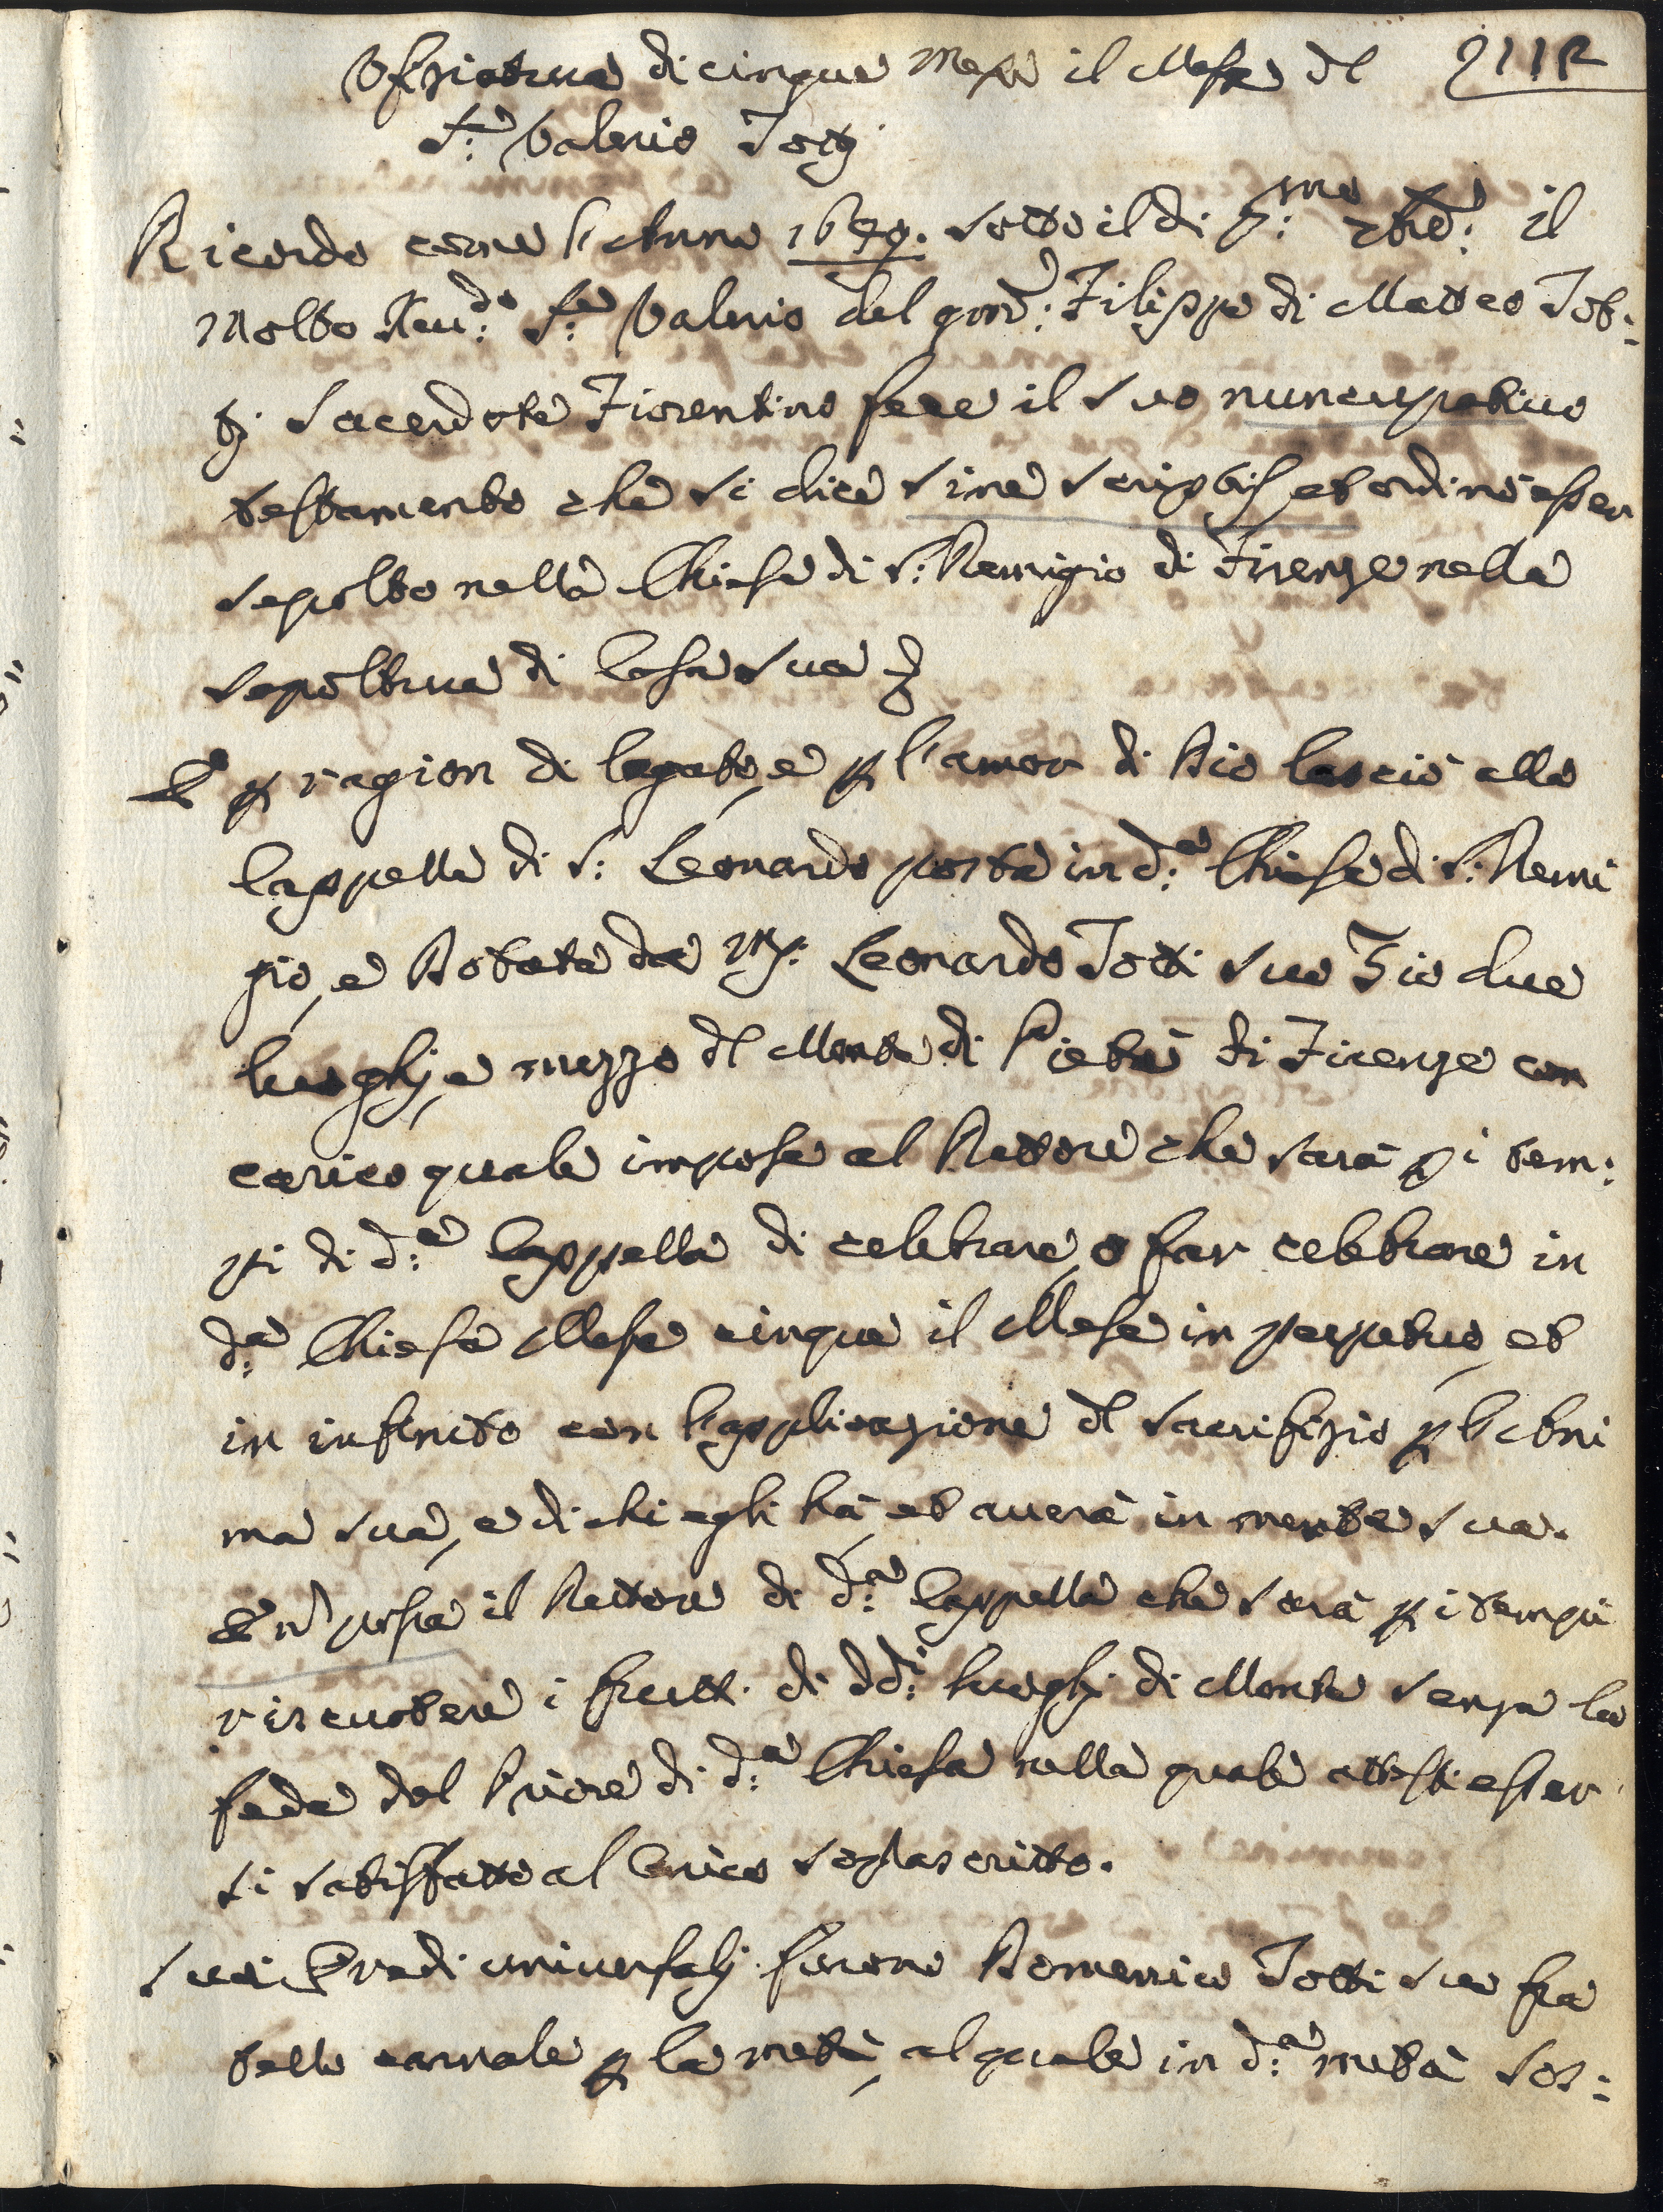 Ufiziatura di cinque Messe il Mese dl 211R
S:re Valerio Totti
Ricordo come l'Anno 1679. sotto il dì p:mo xbre: il
Molto Reu:do S:re Valerio del qm: Filippo di Matteo Tot:
ti sacerdote Fiorentino fece il suo nuncupativo
testamento che si dice sine scriptis, et ordinò esser
sepolto nella Chiesa di S: Remigio di Firenze nella
sepoltura di Casa sua
E p ragion di legato, e p l'amor di Dio lasciò alla
Cappella di S: Leonardo posta in d:a Chiesa di S: Remi
gio, e Dotata da Mr: Leonardo Totti suo Zio due
luoghi, e mezzo dl Monte di Pietà di Firenze con
carico quale impose al Rettore che sarà p i tem:
pi di d:a Cappella di celebrare, o far celebrare in
d:a Chiesa Messe cinque il Mese in perpetuo, et
in infinito con l'applicazione dl sacrifizio p l'Ani
ma sua, e di chi egli hà, et averà in mente sua.
E nò possa il Rettore di d:a Cappella che sarà p i tempi
riscuotere i frutti di dd:i luoghi di Monte senza la
fede del Priore di d:a Chiesa nella quale attesti esser
si satisfatto al Carico soprascritto.
Suoi Eredi universali furono Domenico Totti suo fra
tello carnale p la metà, al quale in d:a metà sos: